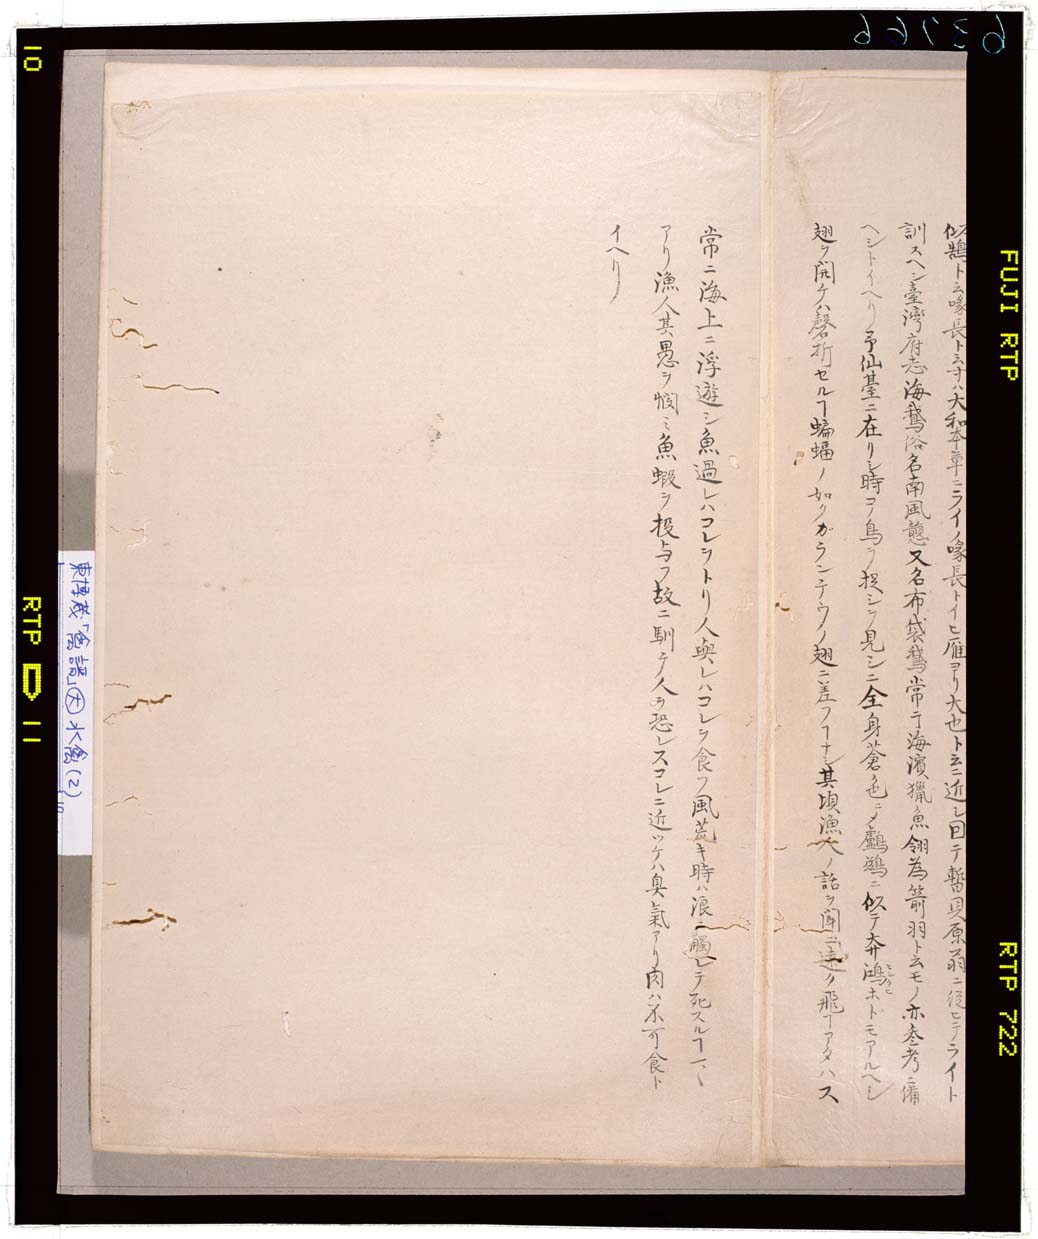 似鵠ト云喙長ト三寸ハ大和本草ニライノ喙長トイヒ雁ヨリ大也ト云ニ近シ曰テ暫貝原翁ニ従ヒテライト
訓スヘシ臺灣府志海鵞俗名南風戇又名布袋鵞常于海濱獵魚翎為箭羽ト云モノ亦参考ニ備
ヘシトイヘリ予仙臺ニ在リシ時コノ鳥ヲ捉シヲ見シニ全身蒼色ニメ鸕鷀ニ似テ大サ鴻ホドモアルヘシ
翅ヲ開ケハ磬折セルヿ蝙蝠ノ如クガランテウノ翅ニ差フヿナシ其頃漁人ノ話ヲ聞ニ遠ク飛ヿアタハス
常ニ海上ニ浮遊シ魚過レハコレヲトリ人與レハコレヲ食フ風荒キ時ハ浪ニ觸レテ死スルヿ
アリ漁人其愚ヲ憫ミ魚蝦ヲ投与フ故ニ馴テ人ヲ恐レスコレニ近ツケハ臭氣アリ肉ハ不可食ト
イヘリ
東博蔵「禽譜」大水禽(2)
63766
10
RTP D 11
FUJI RTP
RTP 722